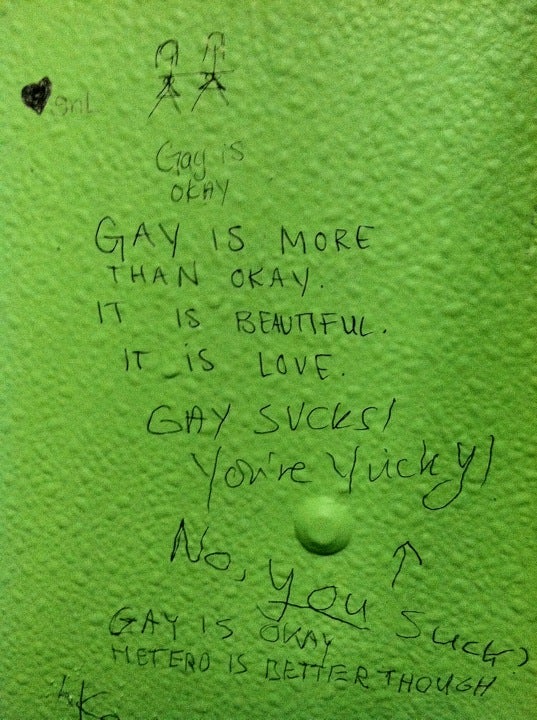 snl
Gay is
OKAY
GAY IS MORE
THAN OKAY.
IT IS BEAUTIFUL.
IT IS LOVE.
GAY SUCKS!
You're Yucky!
No, you suck?
GAY IS OKAY
HETERO IS BETTER THOUGH